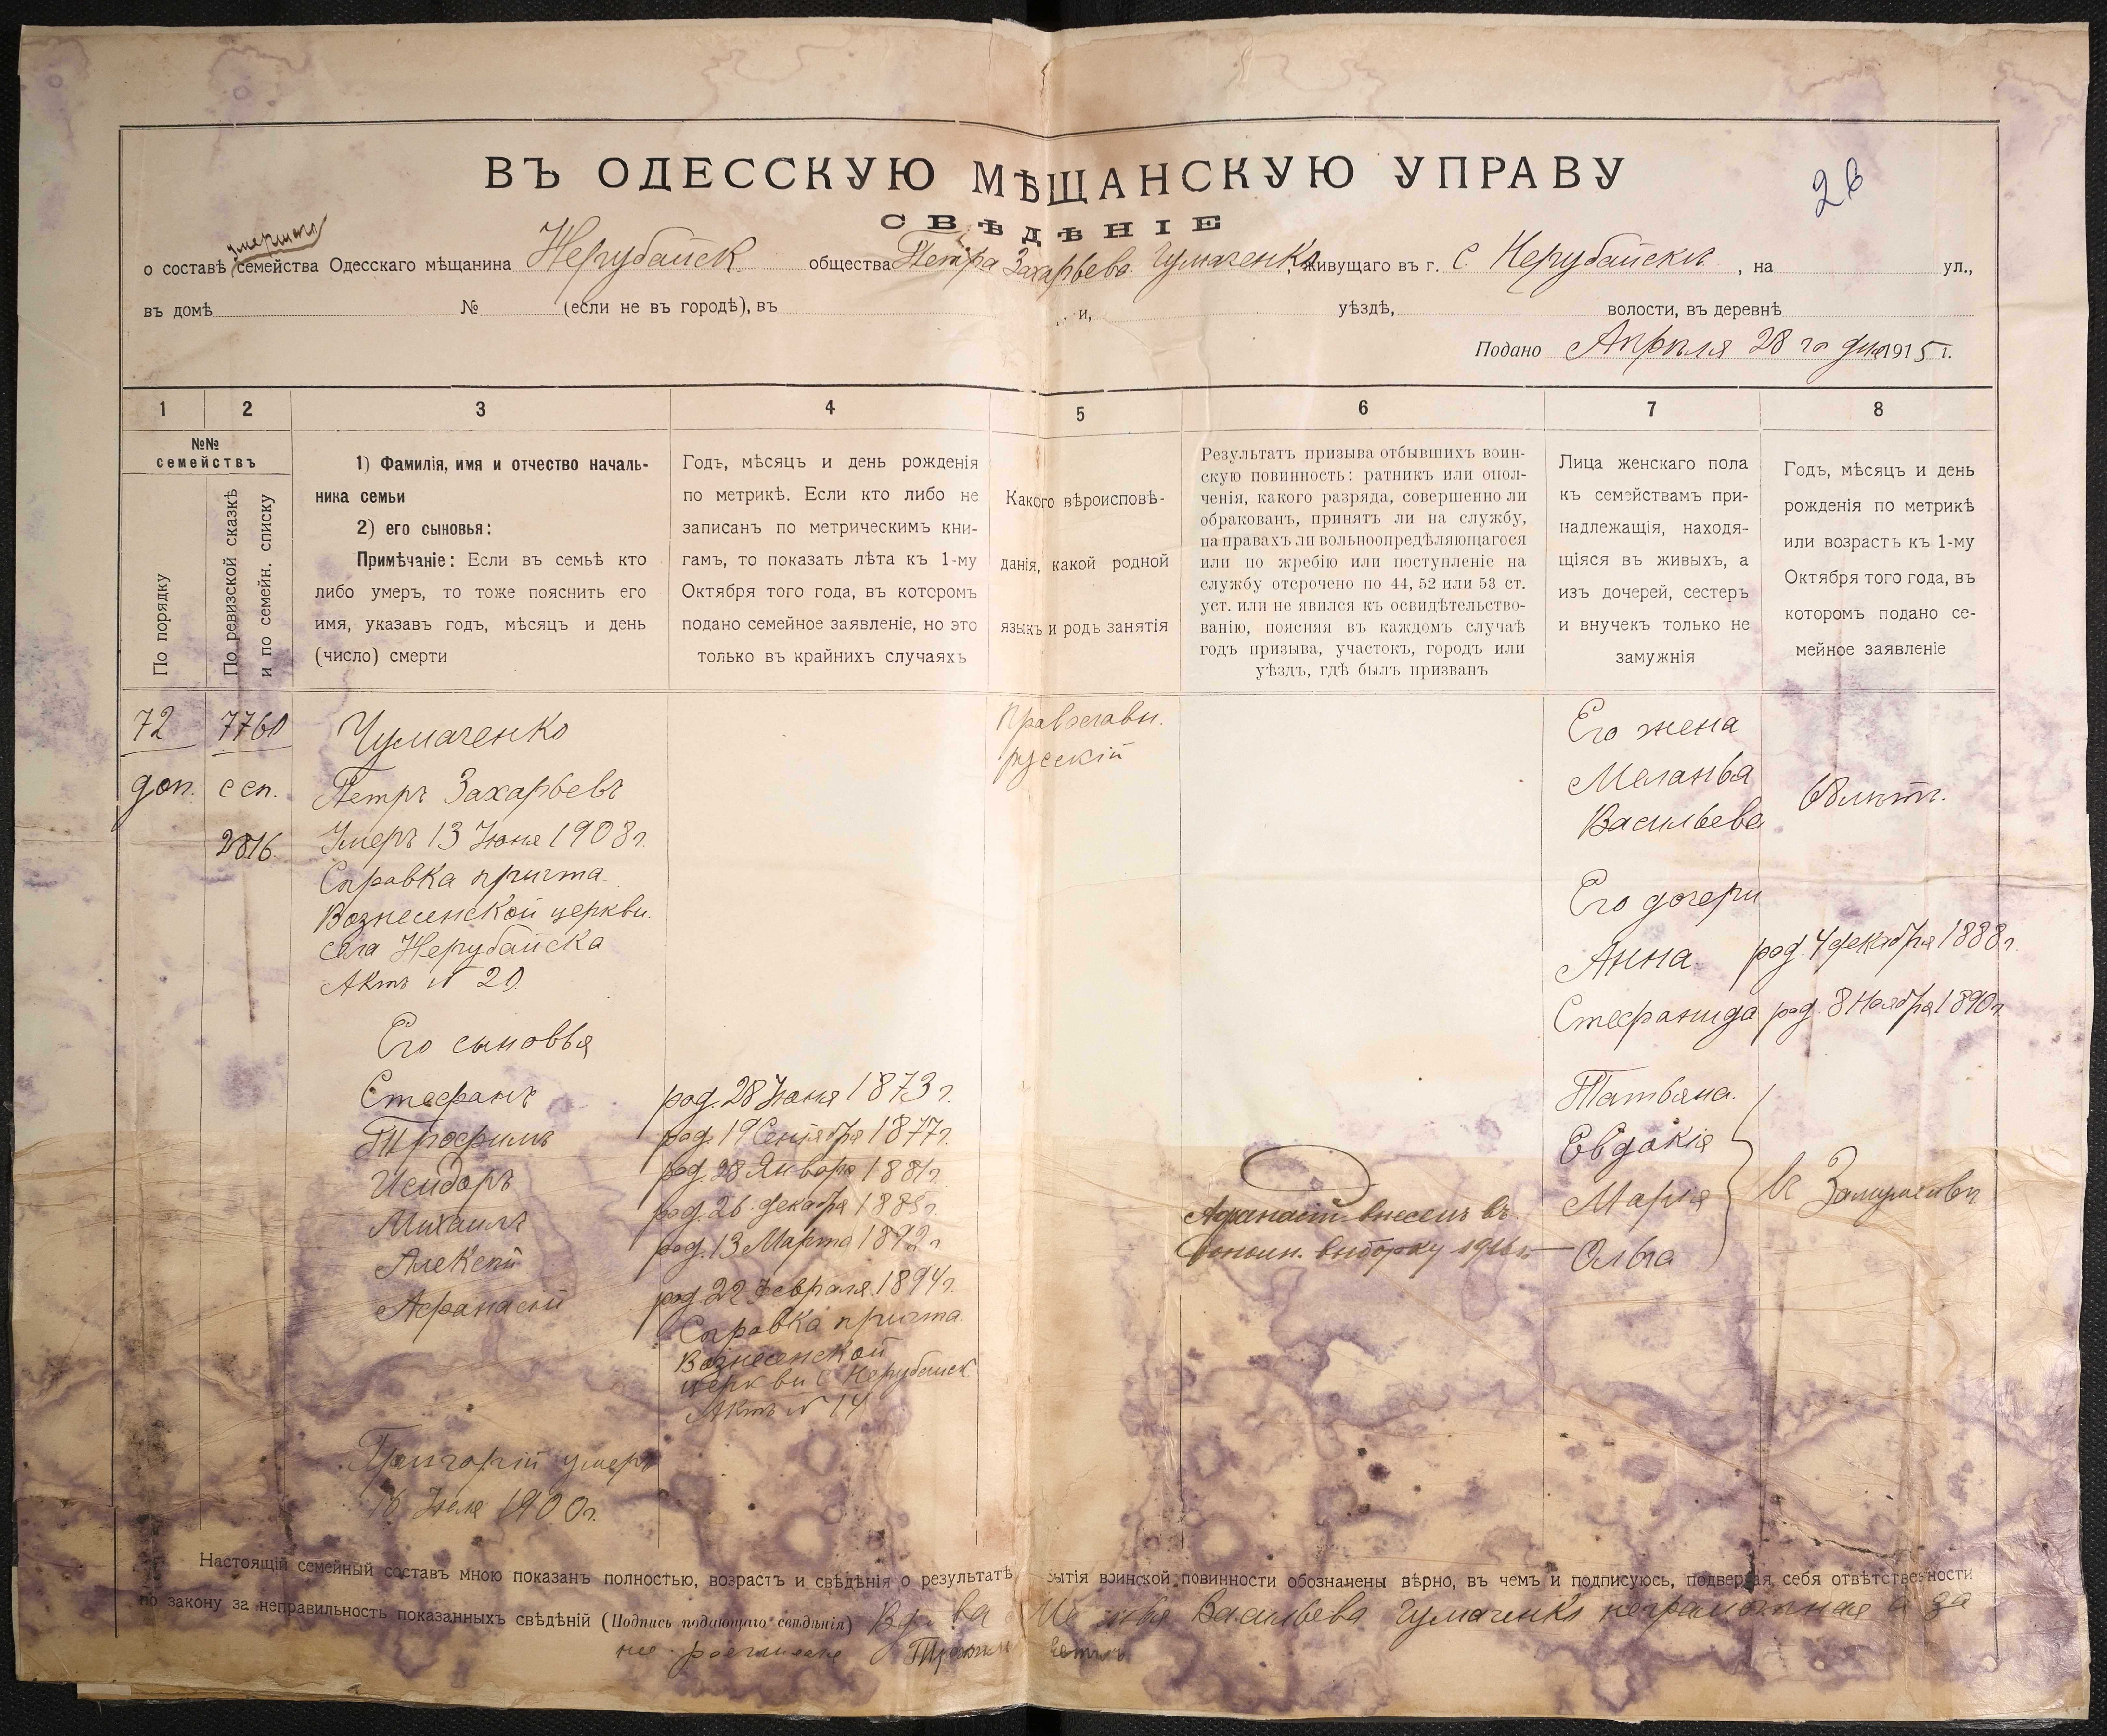 ВЪ ОДЕССКУЮ МѢЩАНСКУЮ УПРАВУ
26
СВѢДѢНІЕ
умершаго
о составѣ семейства Одесскаго мѣщанина Нерубайск общества Петра Захарьева Чумаченко, живущаго въ г. с Нерубайскъ, на ул.,
въ домѣ № (если не въ городѣ), въ и, уѣздѣ, волости, въ деревнѣ
Подано Апрѣля 28 го дня 1915 г.
1 2 3 4 5 6 7 8
№№ семействъ
По порядку
По ревизской сказкѣ
и по семейн. списку
1) Фамилія, имя и отчество началь-
ника семьи
2) его сыновья:
Примѣчаніе: Если въ семьѣ кто
либо умеръ, то тоже пояснить его
имя, указавъ годъ, мѣсяцъ и день
(число) смерти
Годъ, мѣсяцъ и день рожденія
по метрикѣ. Если кто либо не
записанъ по метрическимъ кни-
гамъ, то показать лѣта къ 1-му
Октября того года, въ которомъ
подано семейное заявленіе, но это
только въ крайнихъ случаяхъ
Какого вѣроисповѣ-
данія, какой родной
языкъ и родъ занятія
Результатъ призыва отбывшихъ воин-
скую повинность: ратникъ или опол-
ченія, какого разряда, совершенно ли
обракованъ, принятъ ли на службу,
на правахъ ли вольноопредѣляющагося
или по жребію или поступленіе на
службу отсрочено по 44, 52 или 53 ст.
уст. или не явился къ освидѣтельство-
ванію, поясняя въ каждомъ случаѣ
годъ призыва, участокъ, городъ или
уѣздъ, гдѣ былъ призванъ
Лица женскаго пола
къ семействамъ при-
надлежащія, находя-
щіяся въ живыхъ, а
изъ дочерей, сестеръ
и внучекъ только не
замужнія
Годъ, мѣсяцъ и день
рожденія по метрикѣ
или возрастъ къ 1-му
Октября того года, въ
которомъ подано се-
мейное заявленіе
72
доп.
7760
с сп.
2816
Чумаченко
Петръ Захарьевъ
Умеръ 13 Июня 1908 г.
Справка причта
Вознесенской церкви.
села Нерубайска
Актъ № 20
Его сыновья
Стефанъ род. 28 Июня 1873 г.
Трофимъ род. 19 Сентября 1877 г.
Исидоръ род. 28 Января 1881 г.
Михаилъ род. 26 декабря 1885 г.
Алексѣй род. 13 Марта 1892 г.
Афанасій род. 22 Февраля 1894 г.
Справка причта
Вознесенской
церкви с Нерубайск
Актъ № 14
Григорій умеръ
16 Июля 1900 г.
Православн.
русскій
Афанасій внесенъ въ
выборку
Его жена
Меланья
Васильева 68 лѣтъ.
Его дочери
Анна род. 4 декабря 1888 г.
Стефанида род. 8 Ноября 1890 г.
Татьяна.
Евдокія
Марія
Ольга
Замужеви
Настоящій семейный составъ мною показанъ полностью, возрастъ и свѣдѣнія о результатѣ бытія воинской повинности обозначены вѣрно, въ чемъ и подписуюсь, подвергая себя отвѣтственности
по закону за неправильность показанныхъ свѣдѣній (Подпись подающаго свѣдѣнія) Вдова Ме нья Васильева Чумаченко неграмотная а за
нее росписался